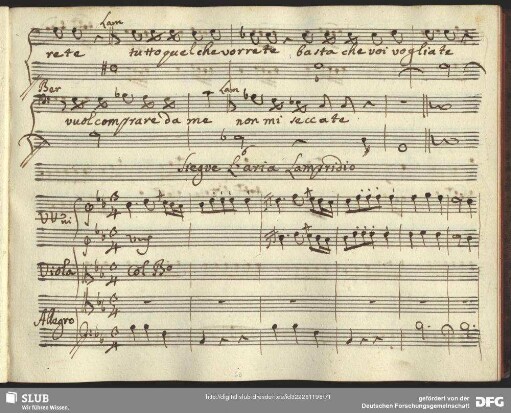 Lam
rete tutto quel che vorrete basta che voi vogliate
Ber
Lam
vuol comprare da me non mi seccate
Siegue L'aria Lampridio
VV.ni
unis
Viola
Col Bo
Allegro
SLUB
Wir führen Wissen.
gefördert von der
Deutschen Forschungsgemeinschaft
DFG